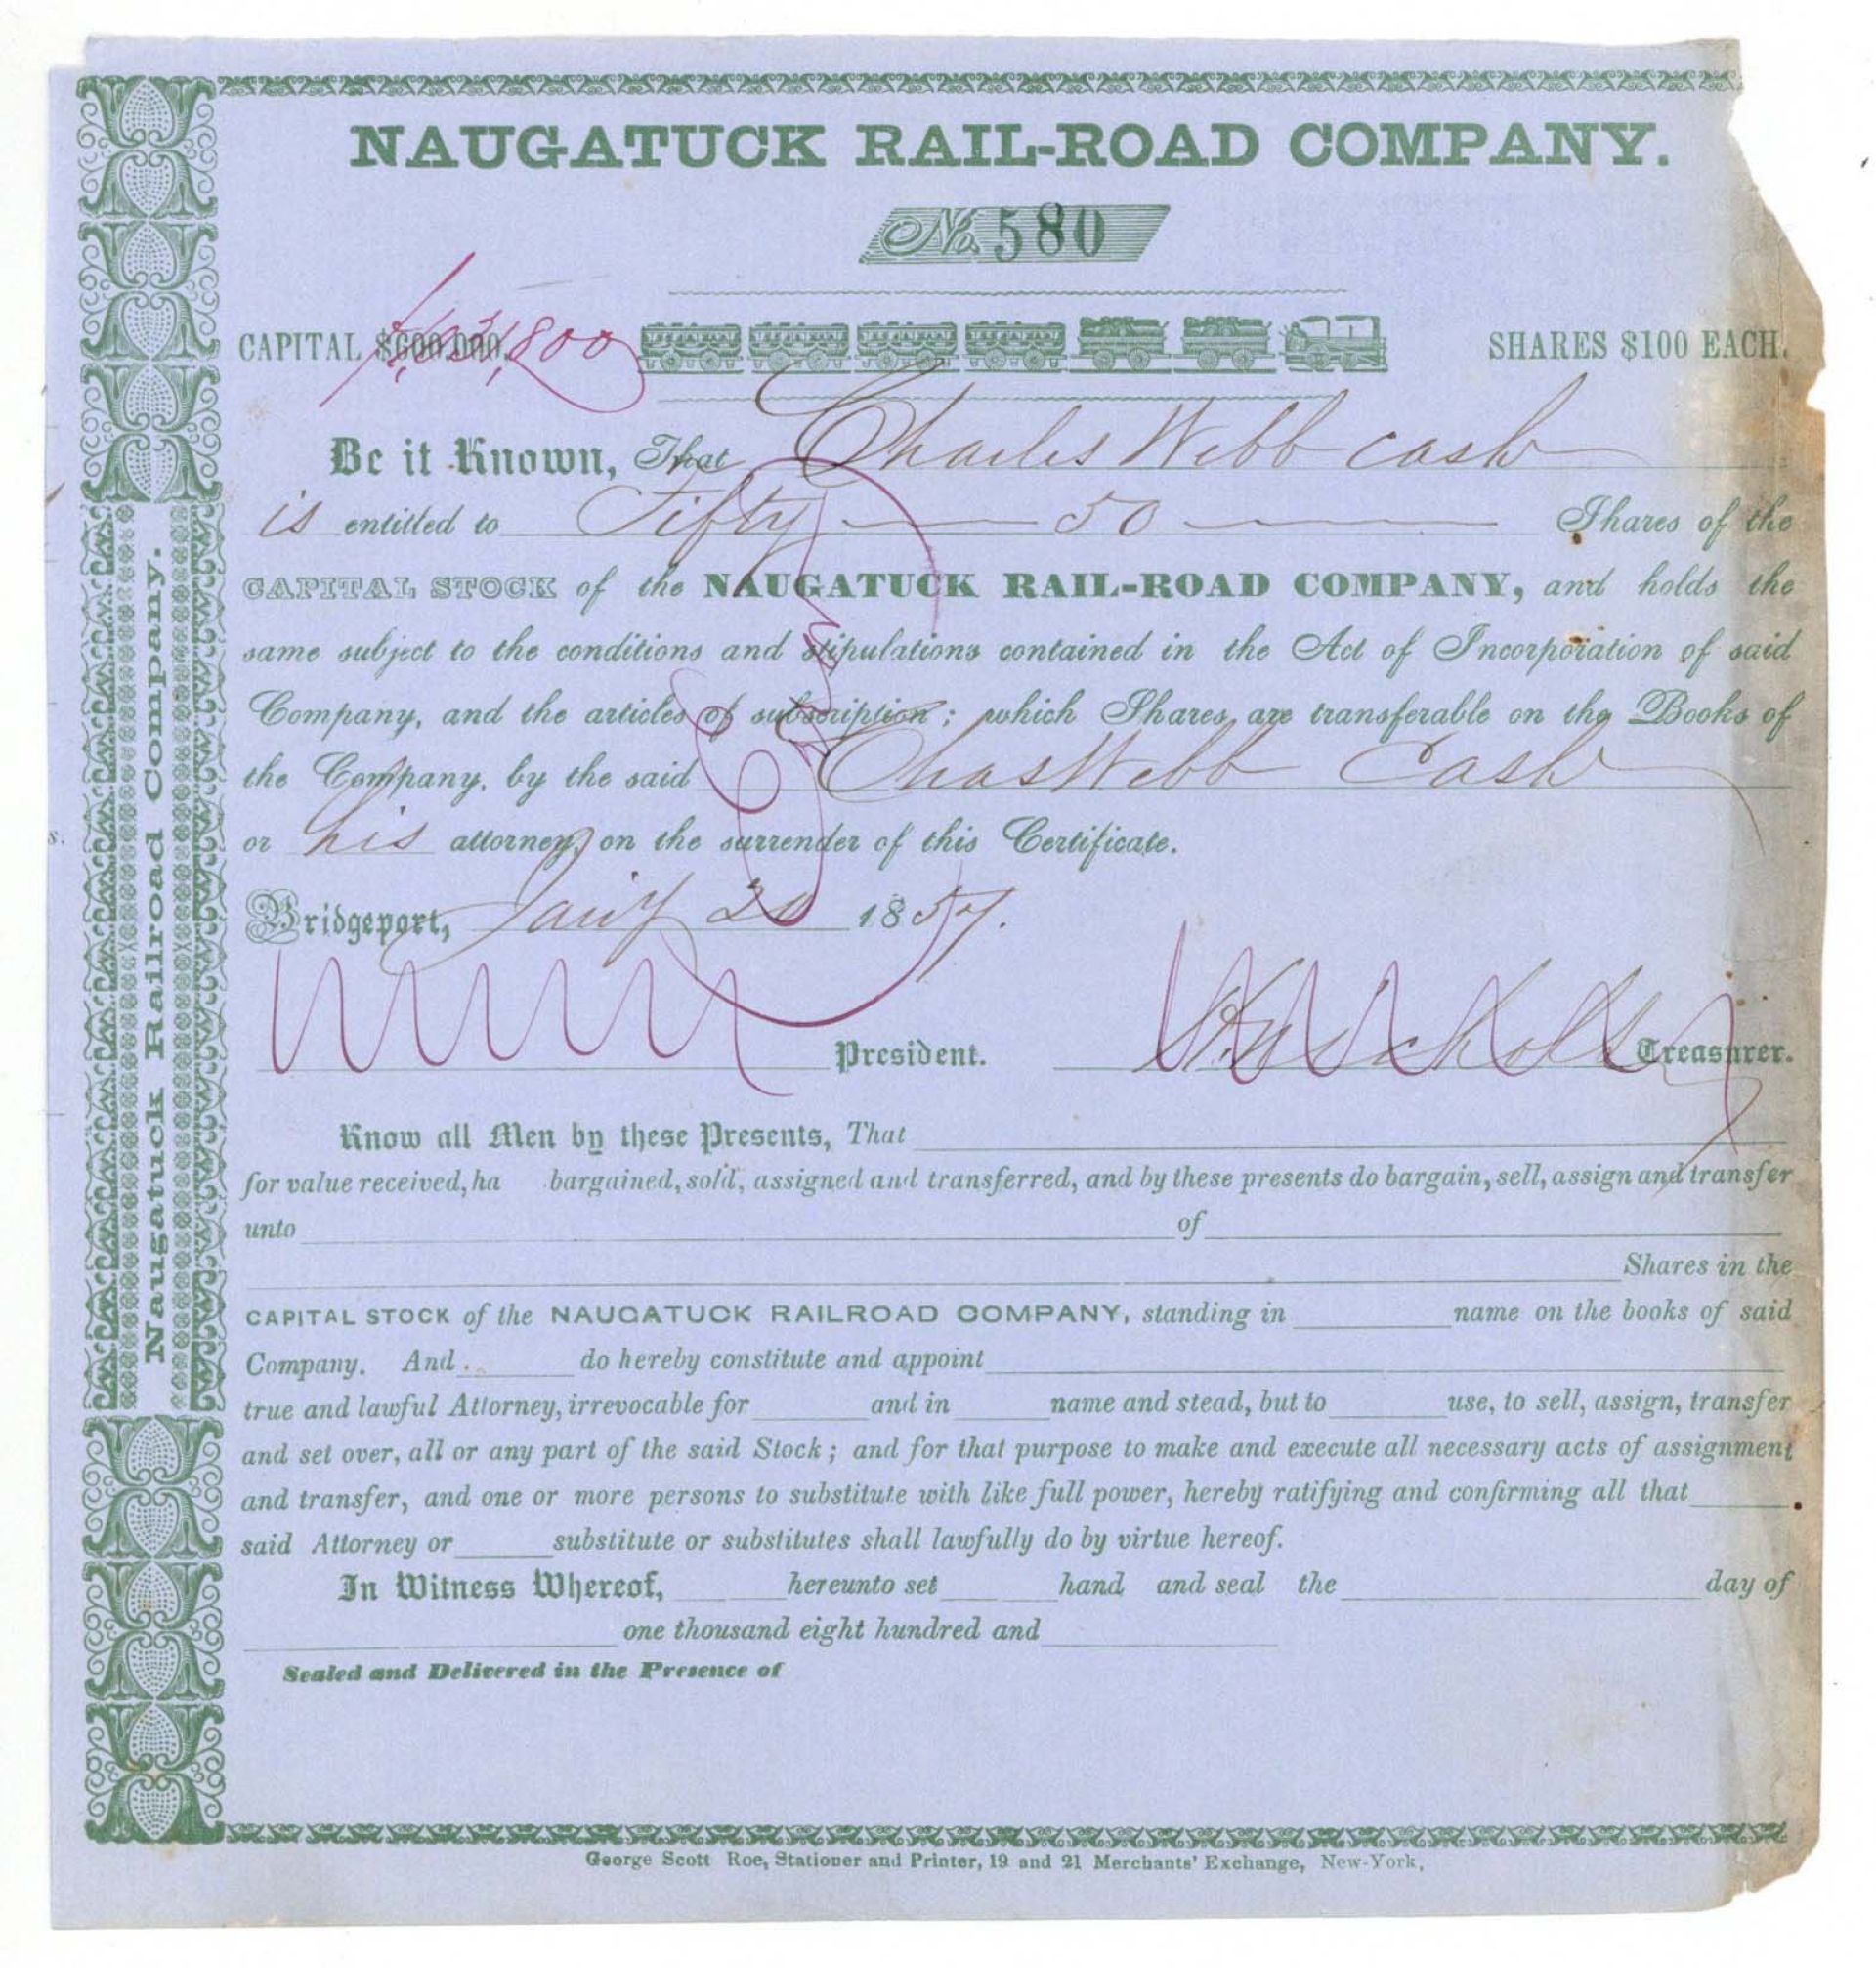 NAUGATUCK RAIL-ROAD COMPANY.
No. 580
CAPITAL $600,000. 1,031,800
SHARES $100 EACH.
Be it Known, That Charles Webb cash
is entitled to Fifty 50 Shares of the
CAPITAL STOCK of the NAUGATUCK RAIL-ROAD COMPANY, and holds the
same subject to the conditions and stipulations contained in the Act of Incorporation of said
Company, and the articles of subscription; which Shares are transferable on the Books of
the Company, by the said Chas Webb Cash
or his attorney, on the surrender of this Certificate.
Bridgeport, Jany 20 1857.
President. Nichols Treasurer.
Know all Men by these Presents, That
for value received, ha bargained, sold, assigned and transferred, and by these presents do bargain, sell, assign and transfer
unto of
Shares in the
CAPITAL STOCK of the NAUGATUCK RAILROAD COMPANY, standing in name on the books of said
Company. And do hereby constitute and appoint
true and lawful Attorney, irrevocable for and in name and stead, but to use, to sell, assign, transfer
and set over, all or any part of the said Stock; and for that purpose to make and execute all necessary acts of assignment
and transfer, and one or more persons to substitute with like full power, hereby ratifying and confirming all that
said Attorney or substitute or substitutes shall lawfully do by virtue hereof.
In Witness Whereof, hereunto set hand and seal the day of
one thousand eight hundred and
Sealed and Delivered in the Presence of
George Scott Roe, Stationer and Printer, 19 and 21 Merchants' Exchange, New-York,
Naugatuck Railroad Company.